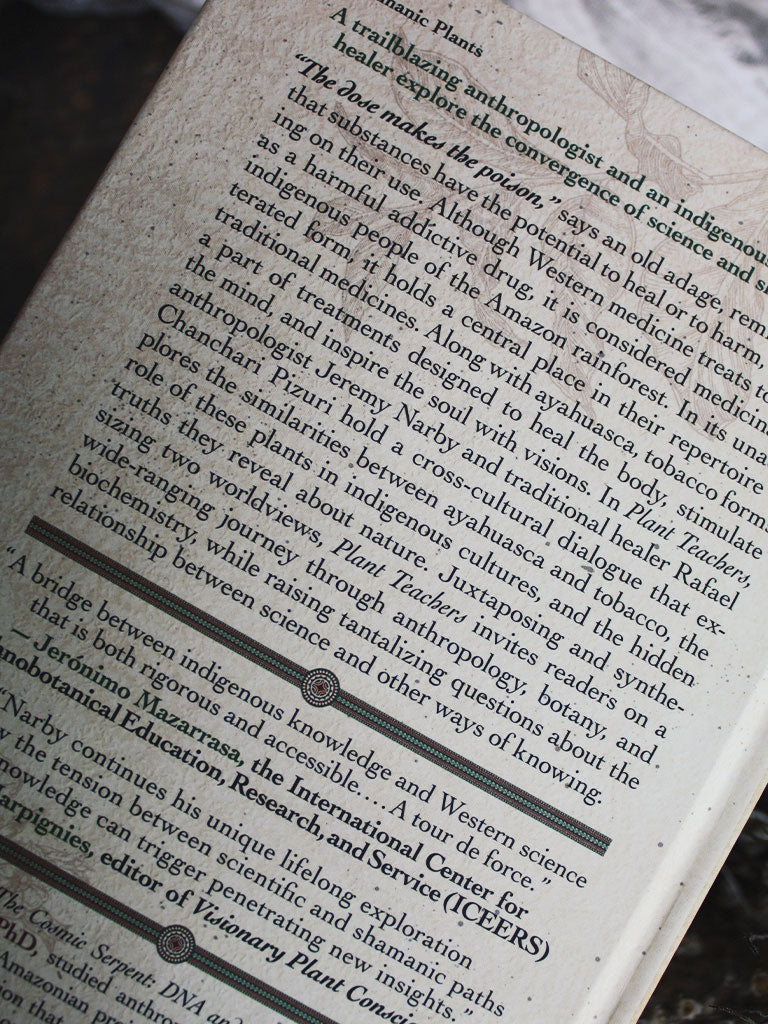 Plants
A trailblazing anthropologist and an indigenous
healer explore the convergence of science and
“The dose makes the poison,” says an old adage,
that substances have the potential to heal or to harm,
ing on their use. Although Western medicine treats
as a harmful addictive drug, it is considered
indigenous people of the Amazon rainforest. In its
terated form, it holds a central place in their repertoire
traditional medicines. Along with ayahuasca, tobacco
a part of treatments designed to heal the body, stimulate
the mind, and inspire the soul with visions. In Plant Teachers,
anthropologist Jeremy Narby and traditional healer Rafael
Chanchari Pizuri hold a cross-cultural dialogue that ex-
plores the similarities between ayahuasca and tobacco, the
role of these plants in indigenous cultures, and the hidden
truths they reveal about nature. Juxtaposing and synthe-
sizing two worldviews, Plant Teachers invites readers on a
wide-ranging journey through anthropology, botany, and
biochemistry, while raising tantalizing questions about the
relationship between science and other ways of knowing.
“A bridge between indigenous knowledge and Western science
that is both rigorous and accessible.... A tour de force.”
— Jerónimo Mazarrasa, the International Center for
Education, Research, and Service (ICEERS)
“Narby continues his unique lifelong exploration
the tension between scientific and shamanic paths
can trigger penetrating new insights.”
editor of Visionary Plant
The Cosmic Serpent: DNA
PhD, studied
Amazonian
that